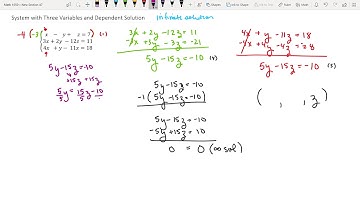 System with Three Variables and Dependent Solution
infinite solution
-4 (-3 (x - y + z = 7) (1)
3x + 2y - 12z = 11
4x + y - 11z = 18
3x + 2y - 12z = 11
-3x + 3y - 3z = -21
5y - 15z = -10 (4)
4x + y - 11z = 18
-4x + 4y - 4z = -28
5y - 15z = -10 (5)
5y - 15z = -10
+15z +15z
5y = 15z - 10
5 5 5
5y - 15z = -10
-1 (5y - 15z = -10)
5y - 15z = -10
-5y + 15z = 10
0 = 0 (∞ sol)
( , , z )